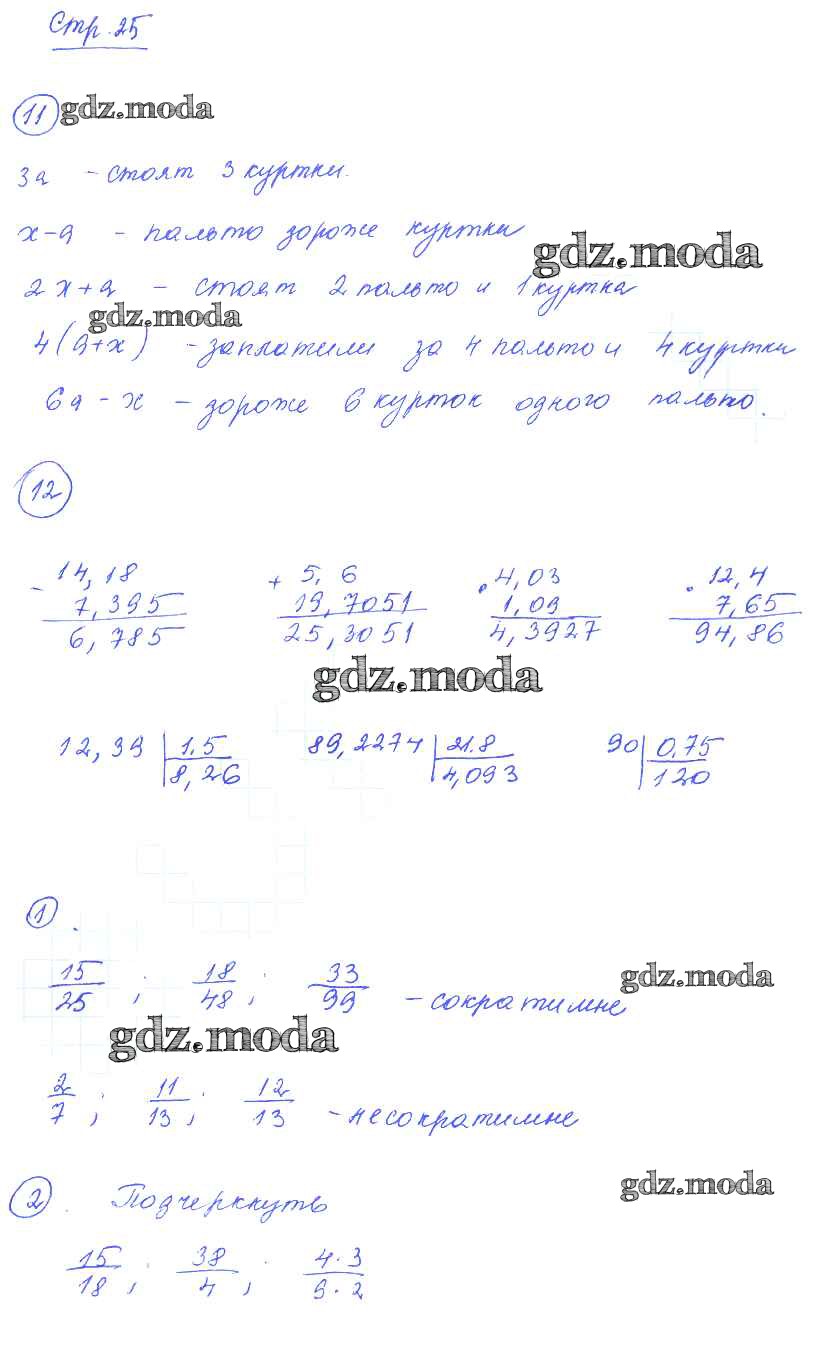 Стр. 25
11 gdz.moda
3а - стоят 3 куртки.
х-а - пальто дороже куртки
gdz.moda
2х+а - стоят 2 пальто и 1 куртка
gdz.moda
4(а+х) - заплатили за 4 пальто и 4 куртки
6а - х - дороже 6 курток одного пальто.
12
- 14,18 + 5,6 · 4,03 · 12,4
7,395 19,7051 1,09 7,65
6,785 25,3051 4,3927 94,86
gdz.moda
12,39 | 1,5 89,2274 | 21.8 90 | 0,75
8,26 4,093 120
1.
15/25 ; 18/48 ; 33/99 - сократимые
gdz.moda
gdz.moda
2/7 ; 11/13 ; 12/13 - несократимые
gdz.moda
2. Подчеркнуть
15/18 ; 38/4 ; 4·3/9·2